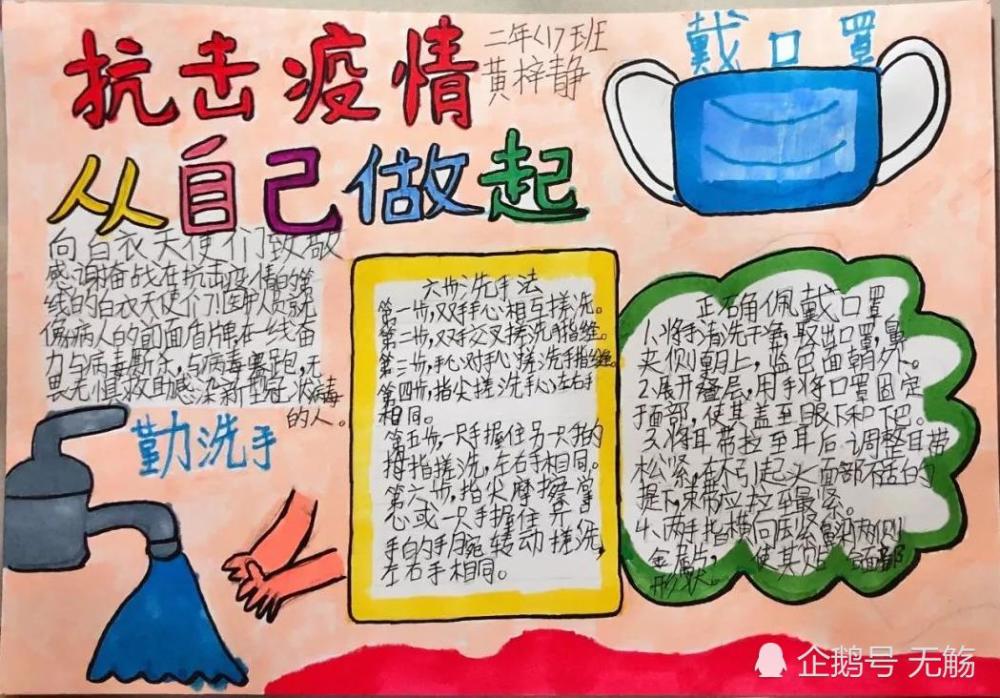 抗击疫情
二年(17)班
黄梓静
戴口罩
从自己做起
向白衣天使们致敬
感谢奋战在抗击疫情的第
线的白衣天使们!医护人员就
像病人的前面盾牌,在一线奋
力与病毒厮杀,与病毒赛跑,无
畏无惧救助感染新型冠状病毒
的人。
勤洗手
六步洗手法
第一步,双手手心相互搓洗。
第二步,双手交叉搓洗手指缝。
第三步,手心对手心搓洗手指缝。
第四步,指尖搓洗手心,左右手
相同。
第五步,一只手握住另一只手的
拇指搓洗,左右手相同。
第六步,指尖摩擦掌
心或一只手握住另
手的手腕转动搓洗,
左右手相同。
正确佩戴口罩
1.将手清洗干净,取出口罩,鼻
夹侧朝上,蓝色面朝外。
2.展开叠层,用手将口罩固定
于面部,使其盖至眼下和下巴。
3.将耳带拉至耳后,调整耳带
松紧,在不引起头面部不适的
提下,束带应拉至最紧。
4.两手指横向压紧鼻梁两侧
金属片,使其贴面部
形状。
企鹅号 无觞